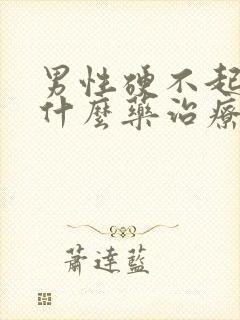 男性硬不起
什麼藥治療
蕭達藍